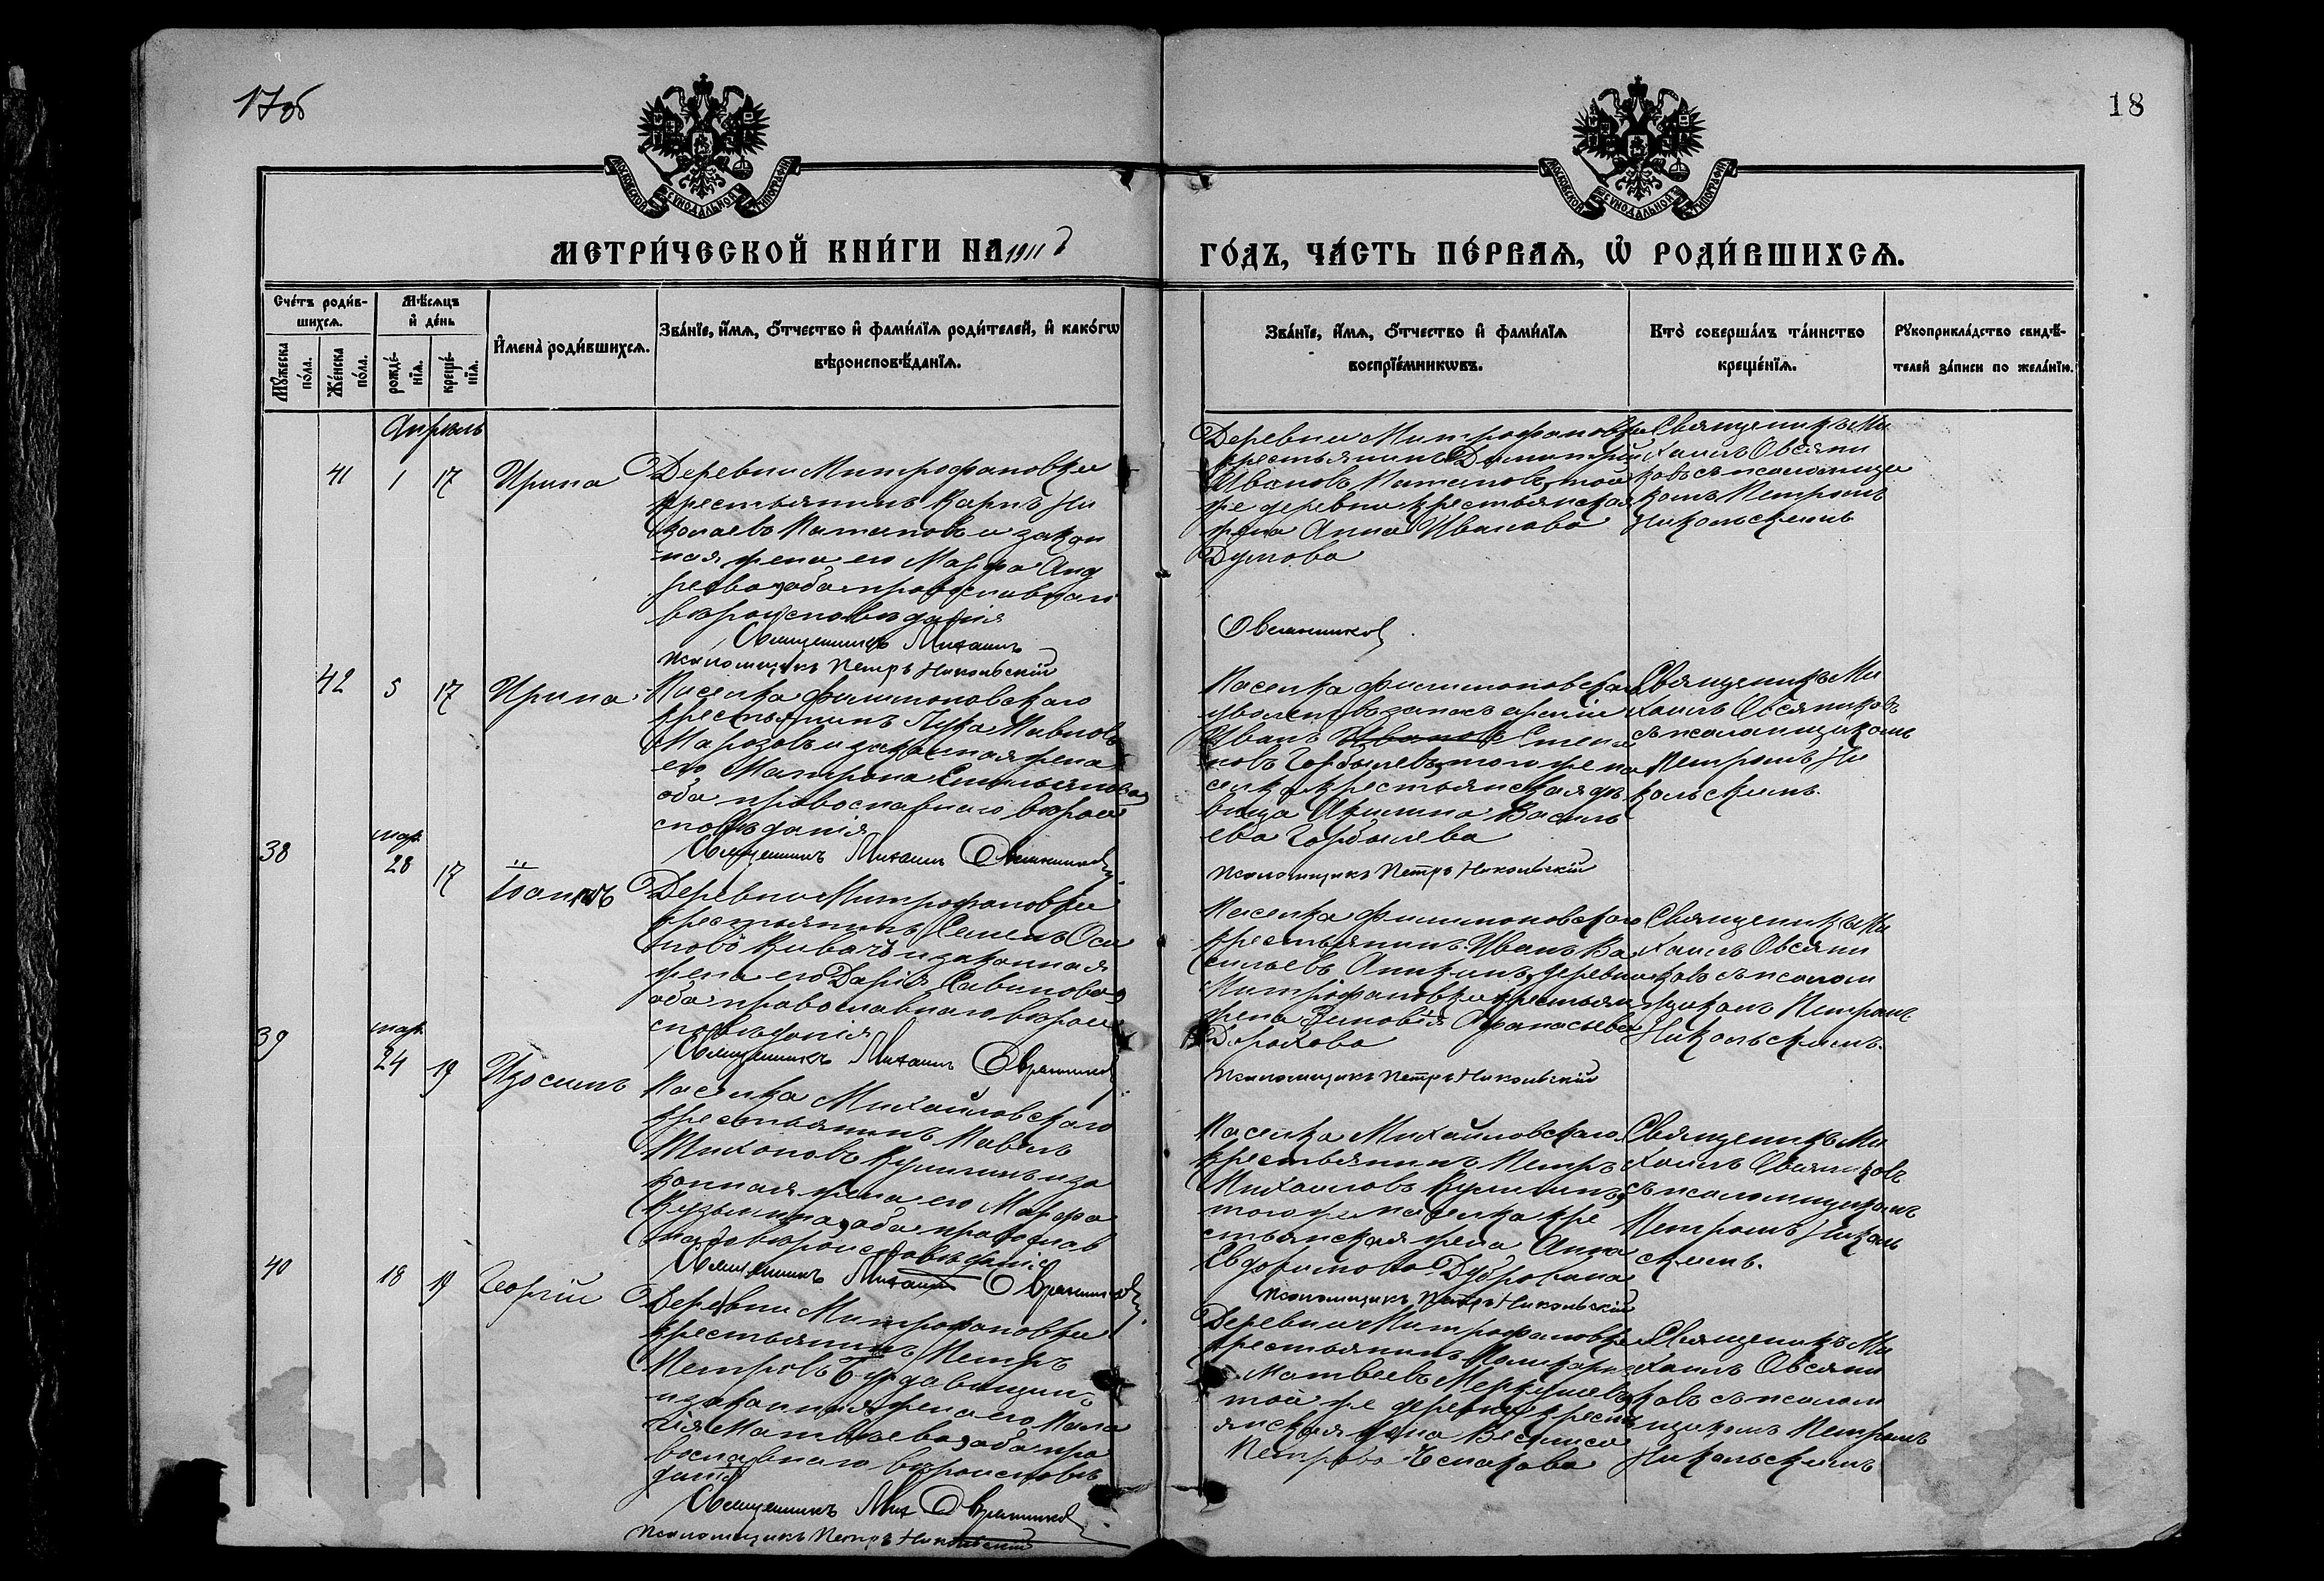 17об
18
МОСКОВСКОЙ СѴНОДАЛЬНОЙ ТИПОГРАФІИ
МОСКОВСКОЙ СѴНОДАЛЬНОЙ ТИПОГРАФІИ
МЕТРИ́ЧЕСКОЙ КНИ́ГИ НА 1911
ГО́ДЪ, ЧА́СТЬ ПЕ́РВАѦ, Ѽ РОДИ́ВШИХСѦ.
Сче́тъ роди́в-
шихсѧ.
Мꙋжеска по́ла.
Же́нска по́ла.
Мѣ́сѧцъ и҆ де́нь
рожде́-
нїѧ.
креще́-
нїѧ.
И҆мена̀ роди́вшихсѧ.
Зва́нїе, и҆́мѧ, ѻ҆́тчество и҆ фами́лїѧ роди́телей, и҆ како́гѡ
вѣроисповѣ́данїѧ.
Зва́нїе, и҆́мѧ, ѻ҆́тчество и҆ фами́лїѧ
воспрїе́мникѡвъ.
Кто̀ соверша́лъ та́инство
креще́нїѧ.
Рꙋкоприкла́дство свидѣ́-
телей за́писи по жела́нїю.
Апрѣль
41 1 17 Ирина
Деревни Митрофановки
крестьянинъ Карпъ Ни
колаевъ Потаповъ и закон
ная жена его Марфа Анд
реева, оба православнаго
вѣроисповѣданія
Священникъ Михаилъ
Псаломщикъ Петръ Никольскій
Деревни Митрофановки
крестьянинъ Димитрій
Ивановъ Потаповъ, той
же деревни крестьянская
жена Анна Иванова
Дурнова
Овсянниковъ
Священникъ Ми
хаилъ Овсяни
ковъ съ псаломщи
комъ Петромъ
Никольскимъ
42 5 17 Ирина
Поселка Филимоновскаго
крестьянинъ Лука Павловъ
Марозовъ и законная жена
его Матрона Емельянова
оба православнаго вѣрои
сповѣданія
Священникъ Михаилъ Овсянниковъ
Поселка Филимоновскаго
уволен. въ запасъ арміи
Иванъ Ивановъ Степа
новъ Горбылевъ, того же по
селка крестьянская дѣ
вица Акилина Василь
ева Горбылева
Псаломщикъ Петръ Никольскій
Священникъ Ми
хаилъ Овсяниковъ
съ псаломщикомъ
Петромъ Ни
кольскимъ.
38 мар. 28 17 Іоаннъ
Деревни Митрофановки
крестьянинъ Семенъ Оси
повъ Кивачъ и законная
жена его Дарія Савинова
оба православнаго вѣрои
сповѣданія
Священникъ Михаилъ Овсянниковъ
Поселка Филимоновскаго
крестьянинъ Иванъ Ва
сильевъ Аникинъ, деревни
Митрофановки крестьян.
жена Зиновія Афанасьева
Дорохова
Псаломщикъ Петръ Никольскій
Священникъ Ми
хаилъ Овсяни
ковъ съ псалом
щикомъ Петромъ
Никольскимъ.
39 мар. 24 19 Изосимъ
Поселка Михайловскаго
крестьянинъ Павелъ
Тихоновъ Кулининъ и за
конная жена его Марфа
Кузьмина, оба православ
наго вѣроисповѣданія
Священникъ Михаилъ Овсянниковъ
Поселка Михайловскаго
крестьянинъ Петръ
Михаиловъ Кулининъ,
того же поселка кре
стьянская жена Анна
Евдокимова Дубровина
Псаломщикъ Петръ Никольскій
Священникъ Ми
хаилъ Овсяниковъ
съ псаломщикомъ
Петромъ Николь
скимъ.
40 18 19 Георгій
Деревни Митрофановки
крестьянинъ Петръ
Петровъ
и законная жена его Пела
гія Матвѣева, оба пра
вославнаго вѣроисповѣ
данія
Священникъ Мих Овсянниковъ
Псаломщикъ Петръ Никольскій
Деревни Митрофановки
крестьянинъ Поликарпъ
Матвеевъ Меркушевъ,
той же деревни кресть
янская жена Васлиса
Петрова
Священникъ Ми
хаилъ Овсяни
ковъ съ псалом
щикомъ Петромъ
Никольскимъ